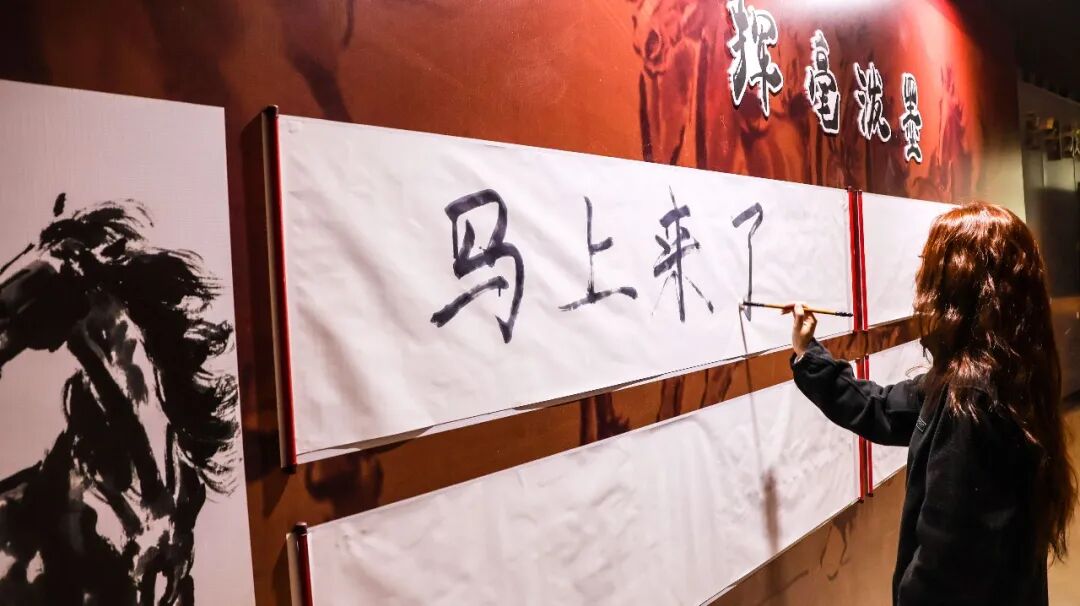 挥毫泼墨
马上来了